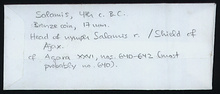 Salamis, 4th c. B.C.
Bronze coin, 17 mm.
Head of nymph Salamis r. / Shield of
Ajax.
cf Agora XXVI, nos. 640-642 (most
probably no. 640).